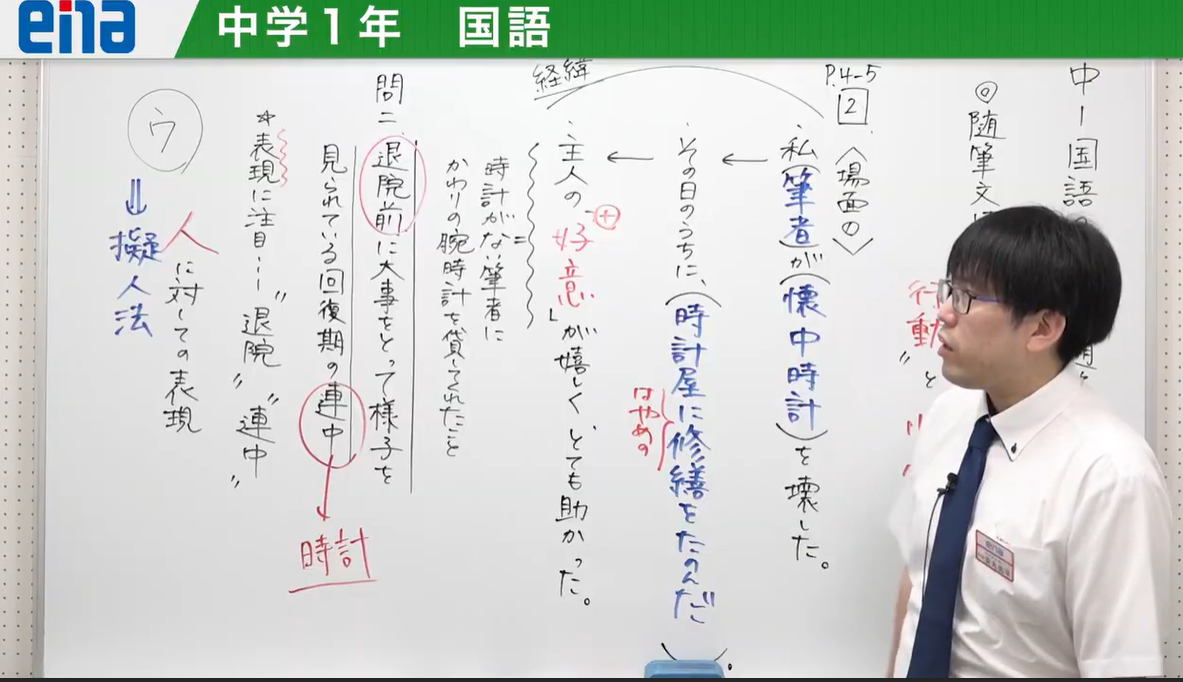 ena
中学1年 国語
中一国語
◎随筆文
行動
”と
P.4-5
2
〈場面の〉
・私(筆者)が(懐中時計)を壊した。
その日のうちに、(時計屋に修繕をたのんだ
はやめの
)。
経緯
・主人の「好意」が嬉しく、とても助かった。
+
=
時計がない筆者に
かわりの腕時計を貸してくれたこと
問二
退院前に大事をとって様子を
見られている回復期の連中
時計
*表現に注目… “退院” “連中”
人に対しての表現
ウ
⇓
擬人法